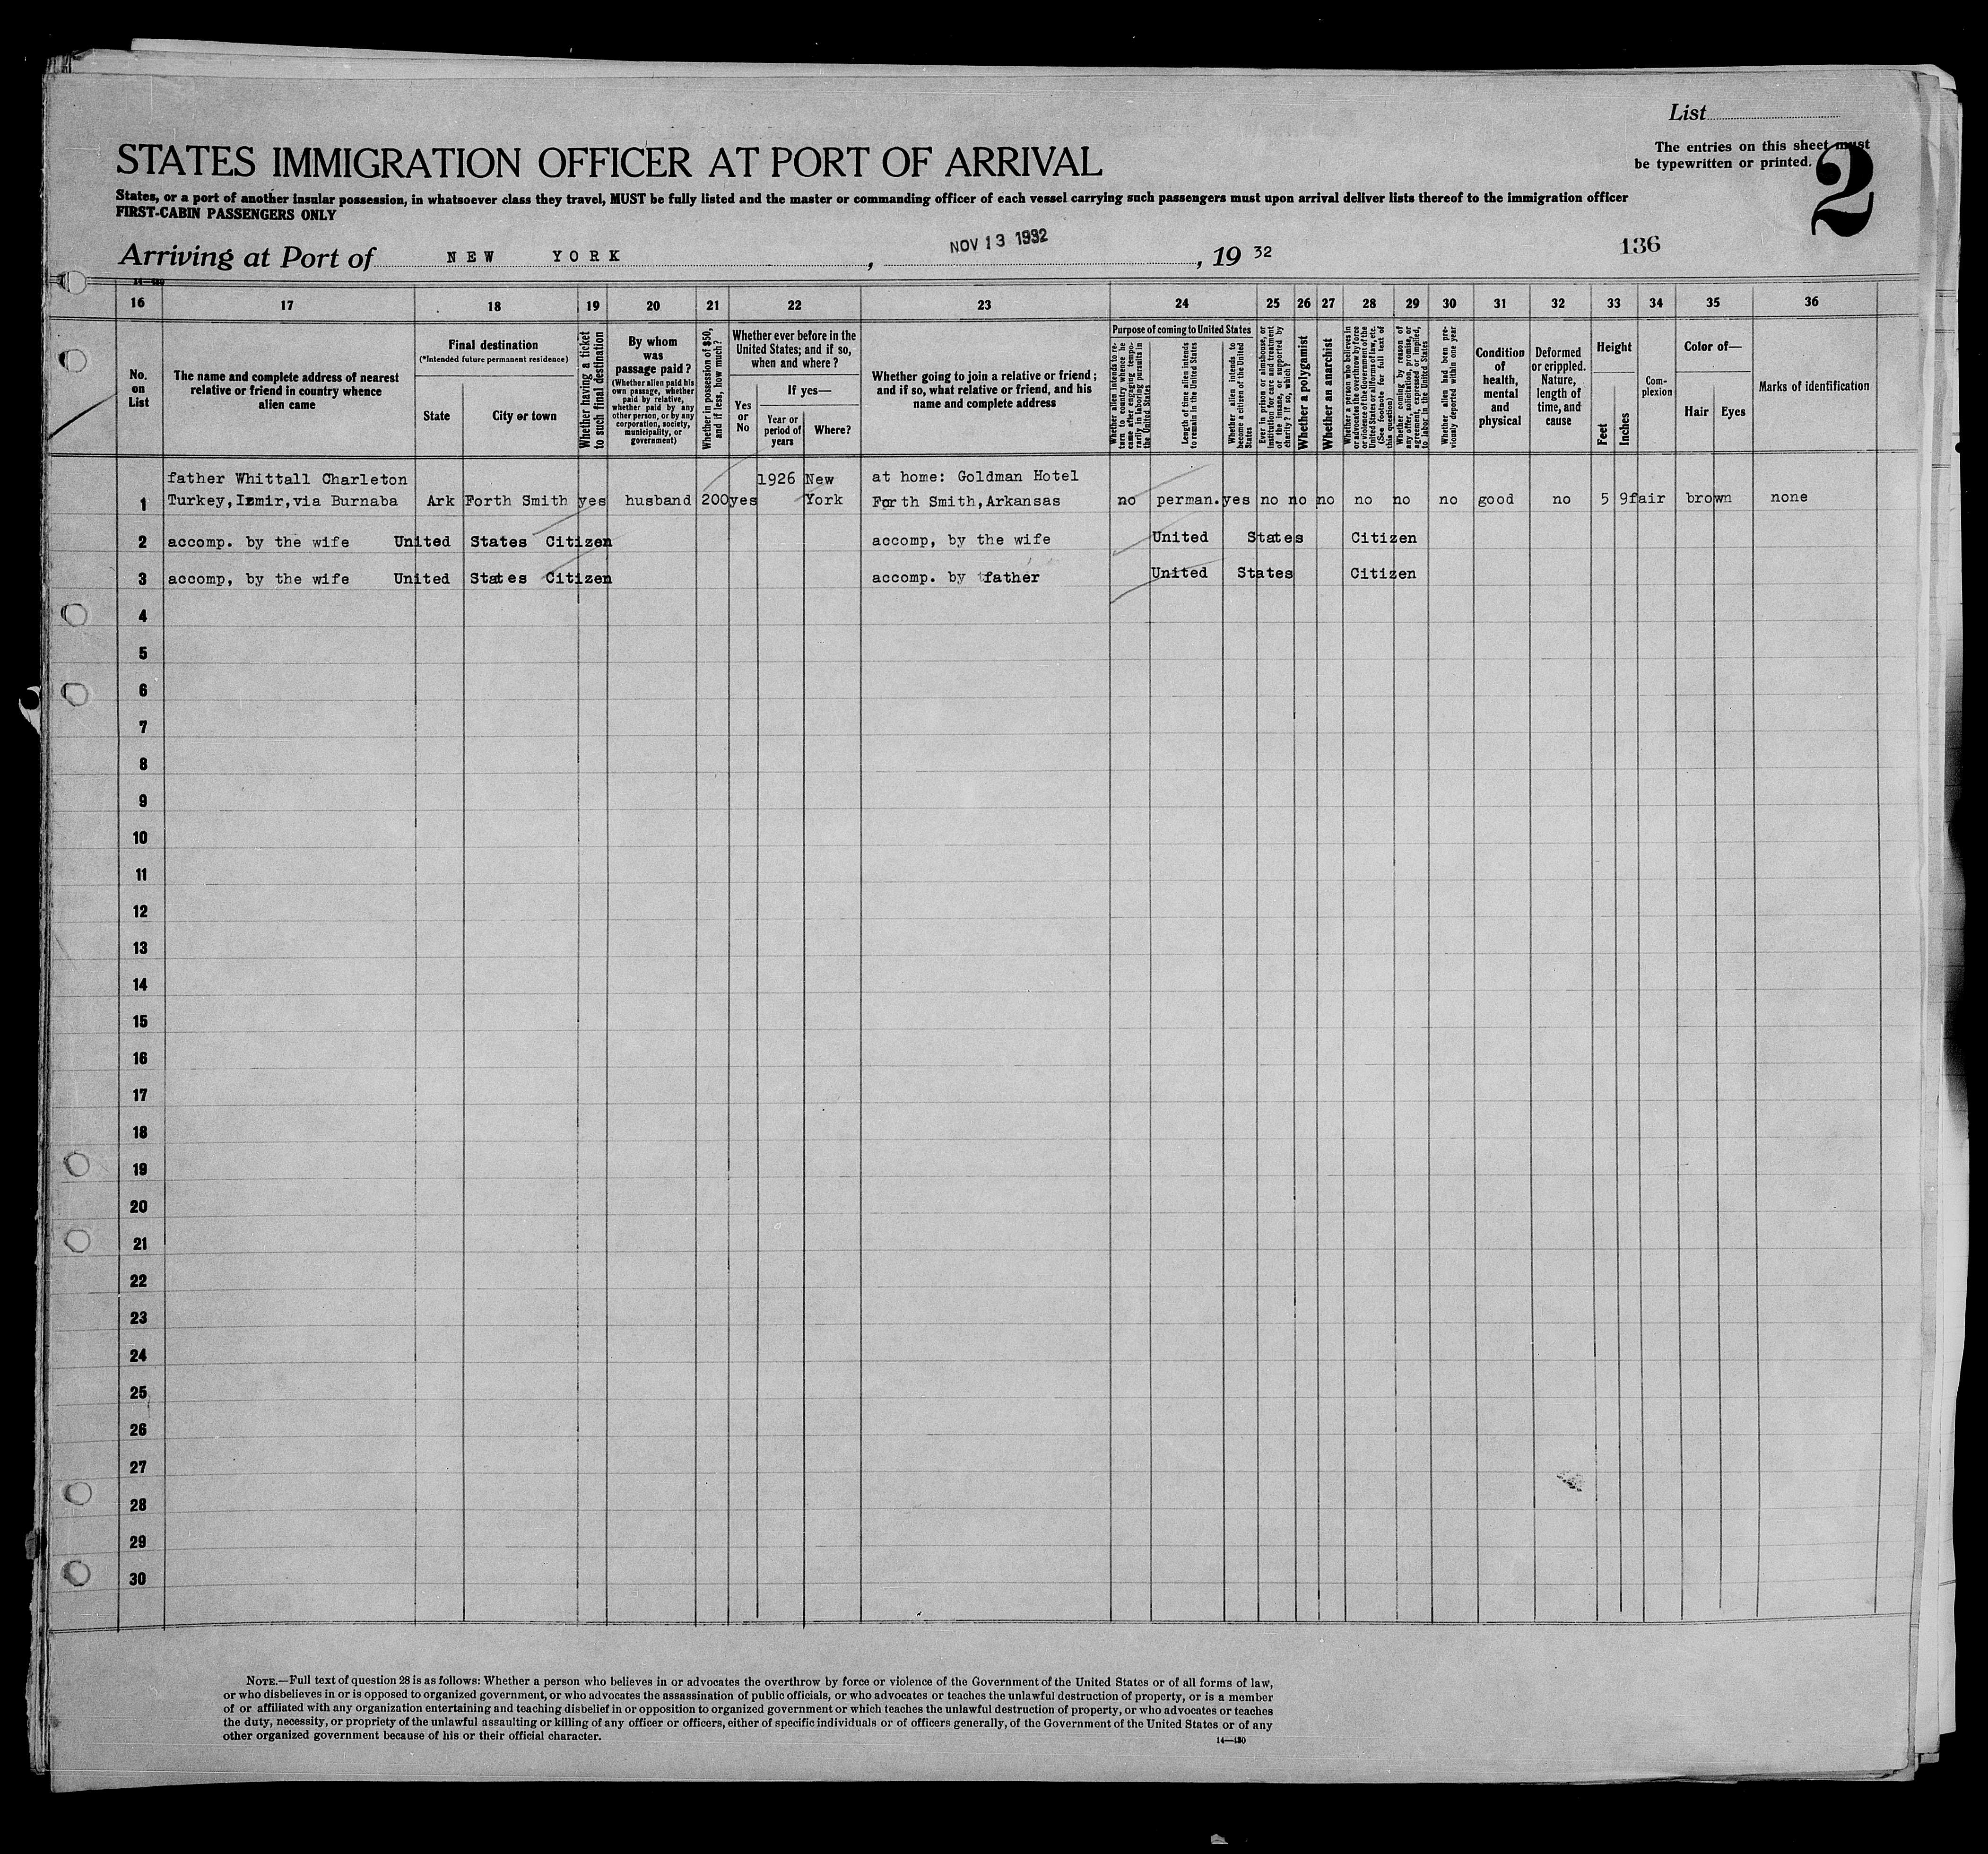 List
The entries on this sheet must
be typewritten or printed.
2
STATES IMMIGRATION OFFICER AT PORT OF ARRIVAL
States, or a port of another insular possession, in whatsoever class they travel, MUST be fully listed and the master or commanding officer of each vessel carrying such passengers must upon arrival deliver lists thereof to the immigration officer
FIRST-CABIN PASSENGERS ONLY
Arriving at Port of NEW YORK, NOV 13 1932, 19 32
136
14—480
16 17 18 19 20 21 22 23 24 25 26 27 28 29 30 31 32 33 34 35 36
No.
on
List
The name and complete address of nearest
relative or friend in country whence
alien came
Final destination
(*Intended future permanent residence)
State
City or town
Whether having a ticket
to such final destination
By whom
was
passage paid?
(Whether alien paid his
own passage, whether
paid by relative,
whether paid by any
other person, or by any
corporation, society,
municipality, or
government)
Whether in possession of $50,
and if less, how much?
Whether ever before in the
United States; and if so,
when and where?
Yes
or
No
If yes—
Year or
period of
years
Where?
Whether going to join a relative or friend;
and if so, what relative or friend, and his
name and complete address
Purpose of coming to United States
Whether alien intends to re-
turn to country whence he
came after engaging tempo-
rarily in laboring pursuits in
the United States
Length of time alien intends
to remain in the United States
Whether alien intends to
become a citizen of the United
States
Ever in prison or almshouse, or
institution for care and treatment
of the insane, or supported by
charity? If so, which?
Whether a polygamist
Whether an anarchist
Whether a person who believes in
or advocates the overthrow by force
or violence of the Government of the
United States or all forms of law, etc.
(See footnote for full text of
this question)
Whether coming by reason of
any offer, solicitation, promise, or
agreement, expressed or implied,
to labor in the United States
Whether alien had been pre-
viously deported within one year
Condition
of
health,
mental
and
physical
Deformed
or crippled.
Nature,
length of
time, and
cause
Height
Feet
Inches
Com-
plexion
Color of—
Hair
Eyes
Marks of identification
father Whittall Charleton 1926 New at home: Goldman Hotel
1 Turkey,Izmir,via Burnaba Ark Forth Smith yes husband 200 yes York Forth Smith,Arkansas no perman. yes no no no no no no good no 5 9 fair brown none
2 accomp. by the wife United States Citizen accomp, by the wife United States Citizen
3 accomp, by the wife United States Citizen accomp. by father United States Citizen
4
5
6
7
8
9
10
11
12
13
14
15
16
17
18
19
20
21
22
23
24
25
26
27
28
29
30
NOTE.—Full text of question 28 is as follows: Whether a person who believes in or advocates the overthrow by force or violence of the Government of the United States or of all forms of law,
or who disbelieves in or is opposed to organized government, or who advocates the assassination of public officials, or who advocates or teaches the unlawful destruction of property, or is a member
of or affiliated with any organization entertaining and teaching disbelief in or opposition to organized government or which teaches the unlawful destruction of property, or who advocates or teaches
the duty, necessity, or propriety of the unlawful assaulting or killing of any officer or officers, either of specific individuals or of officers generally, of the Government of the United States or of any
other organized government because of his or their official character.
14—480